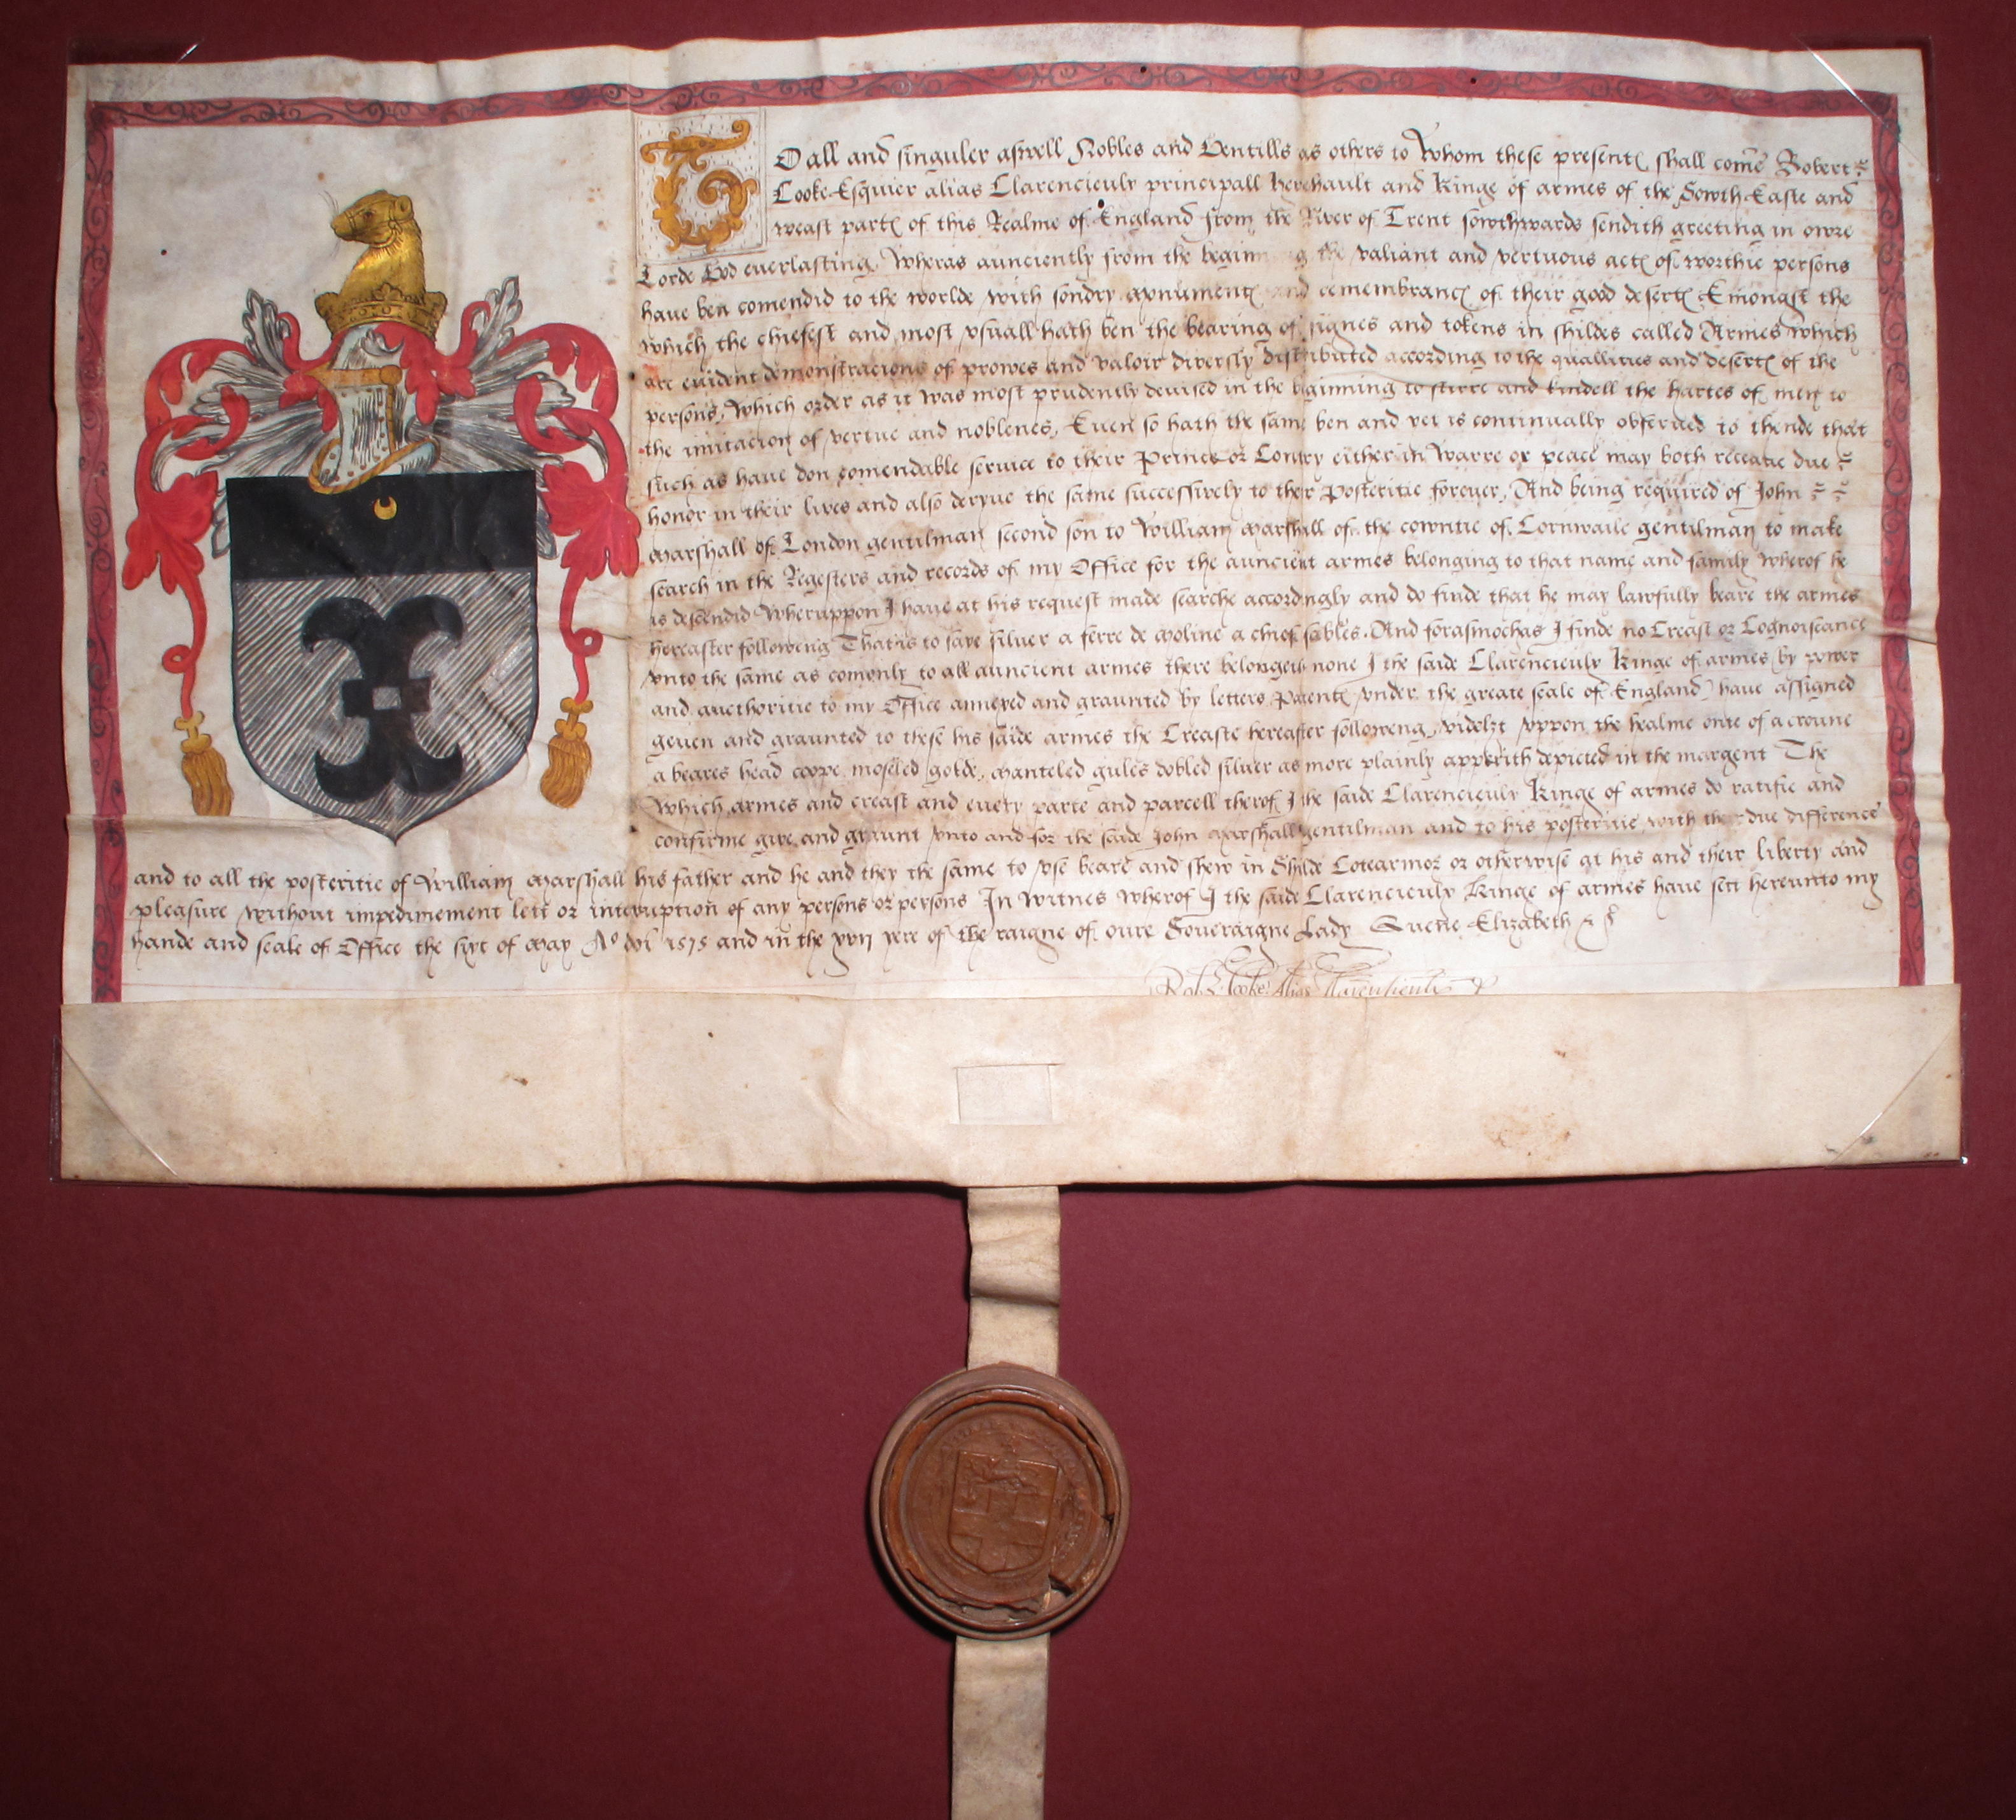 TO all and singuler aswell Nobles and Gentills as others to Whom these presentꝭ shall come Robert
Cooke Esquier alias Clarencieulx principall herehault and Kinge of armes of the Sowth Easte and
weast partꝭ of this Realme of England from the River of Trent sowthwards sendith greeting in owre
Lorde God everlasting, Wheras aunciently from the beginning the valiant and vertuous actꝭ of worthie persons
have ben comendid to the worlde with sondry monumentꝭ and remembrancꝭ of their good desertꝭ Emongst the
which the chiefest and most vsuall hath ben the bearing of signes and tokens in shildes called Armes which
are euident demonstracions of prowes and valoir diversly distributed according to the quallities and desertꝭ of the
persons, Which order as it was most prudently deuised in the biginning to stirre and kindell the hartes of men to
the imitacion of vertue and noblenes, Euen so hath the same ben and yet is continually obserued to thende that
such as haue don comendable service to their Prince or Contry either in Warre or peace may both receaue due
honor in their lives and also deryue the same successively to their Posteritie forever, And being required of John
Marshall of London gentilman second son to William Marshall of the cowntie of Cornwaile gentilman to make
search in the Regesters and records of my Office for the auncient armes belonging to that name and family wherof he
is descendid Wheruppon I haue at his request made searche accordingly and do finde that he may lawfully beare the armes
hereafter followeng That is to saye siluer a ferre de moline a chief sables. And forasmoch as I finde no Creast or Cognoiscance
vnto the same as comonly to all auncient armes there belongeth none I the saide Clarencieulx Kinge of armes by power
and aucthoritie to my Office annexed and graunted by letters Patentꝭ vnder the greate seale of England have assigned
geuen and graunted to these his saide armes the Creaste hereafter followeng, videlzt vppon the healme oute of a croune
a beares head coope moseled golde, manteled gules dobled siluer as more plainly apperith depicted in the margent The
Which armes and creast and every parte and parcell therof I the saide Clarencieulx Kinge of armes do ratifie and
confirme give and graunt vnto and for the saide John Marshall gentilman and to his posteritie with their due difference
and to all the posteritie of William Marshall his father and he and they the same to vse beare and shew in Shilde Cotearmor or otherwise at his and their liberty and
pleasure without impedimement lett or interuption of any persons or persons In witnes wherof I the saide Clarencieulx Kinge of armes have sett hereunto my
hande and seale of Office the sixt of May Ao dni 1575 and in the xvij yere of the raigne of oure Soueraigne Lady Quene Elizabeth &c
Robt. Cooke Alias Clarencieulx